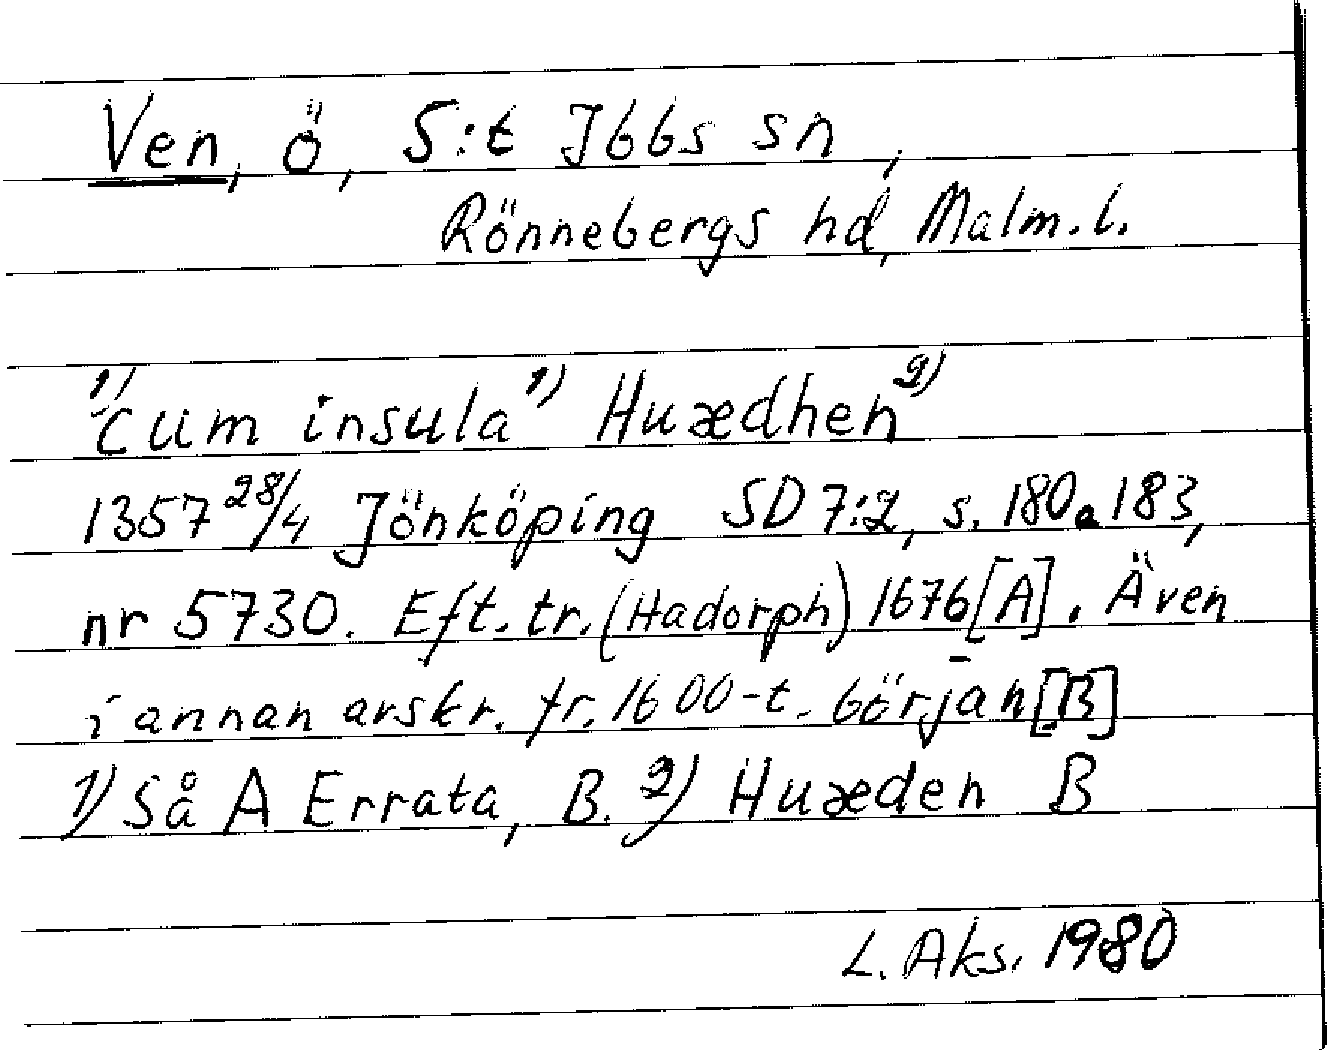 Ven, ö, S:t Ibbs sn,
Rönnebergs hd, Malm.l.
"1)cum insula"1) Huædhen2)
1357 28/4 Jönköping SD 7:2, s. 180 o 183,
nr 5730. Eft. tr. (Hadorph) 1676 [A]. Även
i annan avskr. fr. 1600-t. början [B]
1) Så A Errata, B. 2) Huæden B
L. Aks. 1980